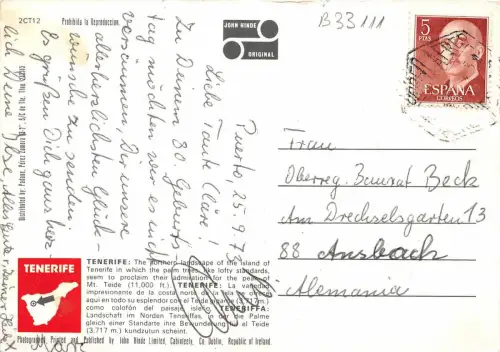 2CT12
Prohibida la Reproduccion.
JOHN HINDE
ORIGINAL
B33111
5
PTAS
ESPAÑA
CORREOS
Puerto 25.9.73
Liebe Tante Cläre!
Zu Deinem 80. Geburts-
tag möchten wir es nicht
versäumen, Dir unsere
allerherzlichsten Glück-
wünsche zu senden.
Es grüßen Dich ganz herz-
lich Deine Ilse, Alles Gute
Frau
Oberreg. Baurat Beck
Am Drechselsgarten 13
88 Ansbach
Alemania
TENERIFE
TENERIFE: The northern landscape of the island of
Tenerife in which the palm trees, like lofty standards,
seem to proclaim their admiration for the peak of
Mt. Teide (11,000 ft.). TENERIFE: La variedad
impresionante de la costa norte. Una isla le ofrece
aquí en todo su esplendor con el Teide (3,717 m.)
como colofón del paisaje isleño. TENERIFFA:
Landschaft im Norden Teneriffas, in der die Palme
gleich einer Standarte ihre Bewunderung für El Teide
(3,717 m.) kundzugeben scheint.
Photographed, Printed and Published by John Hinde Limited, Cabinteely, Co Dublin, Republic of Ireland.